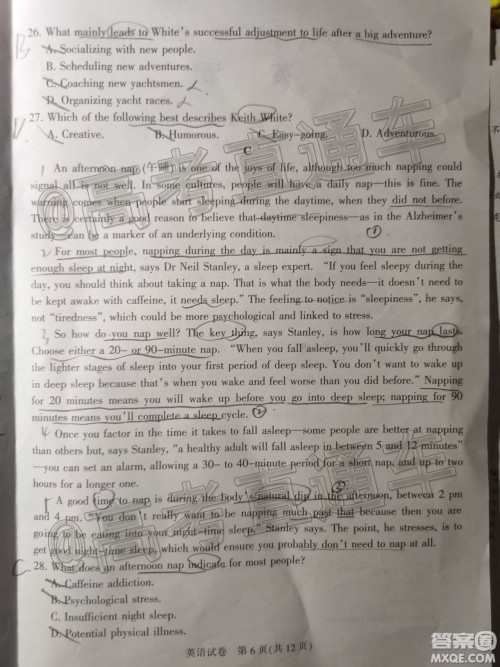 26. What mainly leads to White's successful adjustment to life after a big adventure?
B
A. Socializing with new people.
B. Scheduling new adventures.
C. Coaching new yachtsmen.
D. Organizing yacht races.
27. Which of the following best describes Keith White?
A. Creative. B. Humorous. C. Easy-going. D. Adventurous.
C
An afternoon nap (午睡) is one of the joys of life, although too much napping could
signal all is not well. In some cultures, people will have a daily nap—this is fine. The
warning comes when people start sleeping during the daytime, when they did not before.
There is certainly a good reason to believe that daytime sleepiness—as in the Alzheimer's
study—can be a marker of an underlying condition.
①
2 For most people, napping during the day is mainly a sign that you are not getting
enough sleep at night, says Dr Neil Stanley, a sleep expert. "If you feel sleepy during the
day, you should think about taking a nap. That is what the body needs—it doesn't need to
be kept awake with caffeine, it needs sleep." The feeling to notice is "sleepiness", he says,
not "tiredness", which could be more psychological and linked to stress.
3 So how do you nap well? The key thing, says Stanley, is how long your nap lasts.
Choose either a 20- or 90-minute nap. "When you fall asleep, you'll quickly go through
the lighter stages of sleep into your first period of deep sleep. You don't want to wake up
in deep sleep because that's when you wake and feel worse than you did before." Napping
for 20 minutes means you will wake up before you go into deep sleep; napping for 90
minutes means you'll complete a sleep cycle. ②
4 Once you factor in the time it takes to fall asleep—some people are better at napping
than others but, says Stanley, "a healthy adult will fall asleep in between 5 and 12 minutes"
—you can set an alarm, allowing a 30- to 40-minute period for a short nap, and up to two
hours for a longer one.
A good time to nap is during the body's natural dip in the afternoon, between 2 pm
and 4 pm. "You don't really want to be napping much past that because then you are
going to be eating into your night-time sleep," Stanley says. The point, he stresses, is to
get good night-time sleep, which would ensure you probably don't need to nap at all.
C. 28. What does an afternoon nap indicate for most people?
A. Caffeine addiction.
B. Psychological stress.
C. Insufficient night sleep.
D. Potential physical illness.
英语试卷 第 6 页(共 12 页)
@高考直通车
@高考直通车
@高考直通车
答案圈